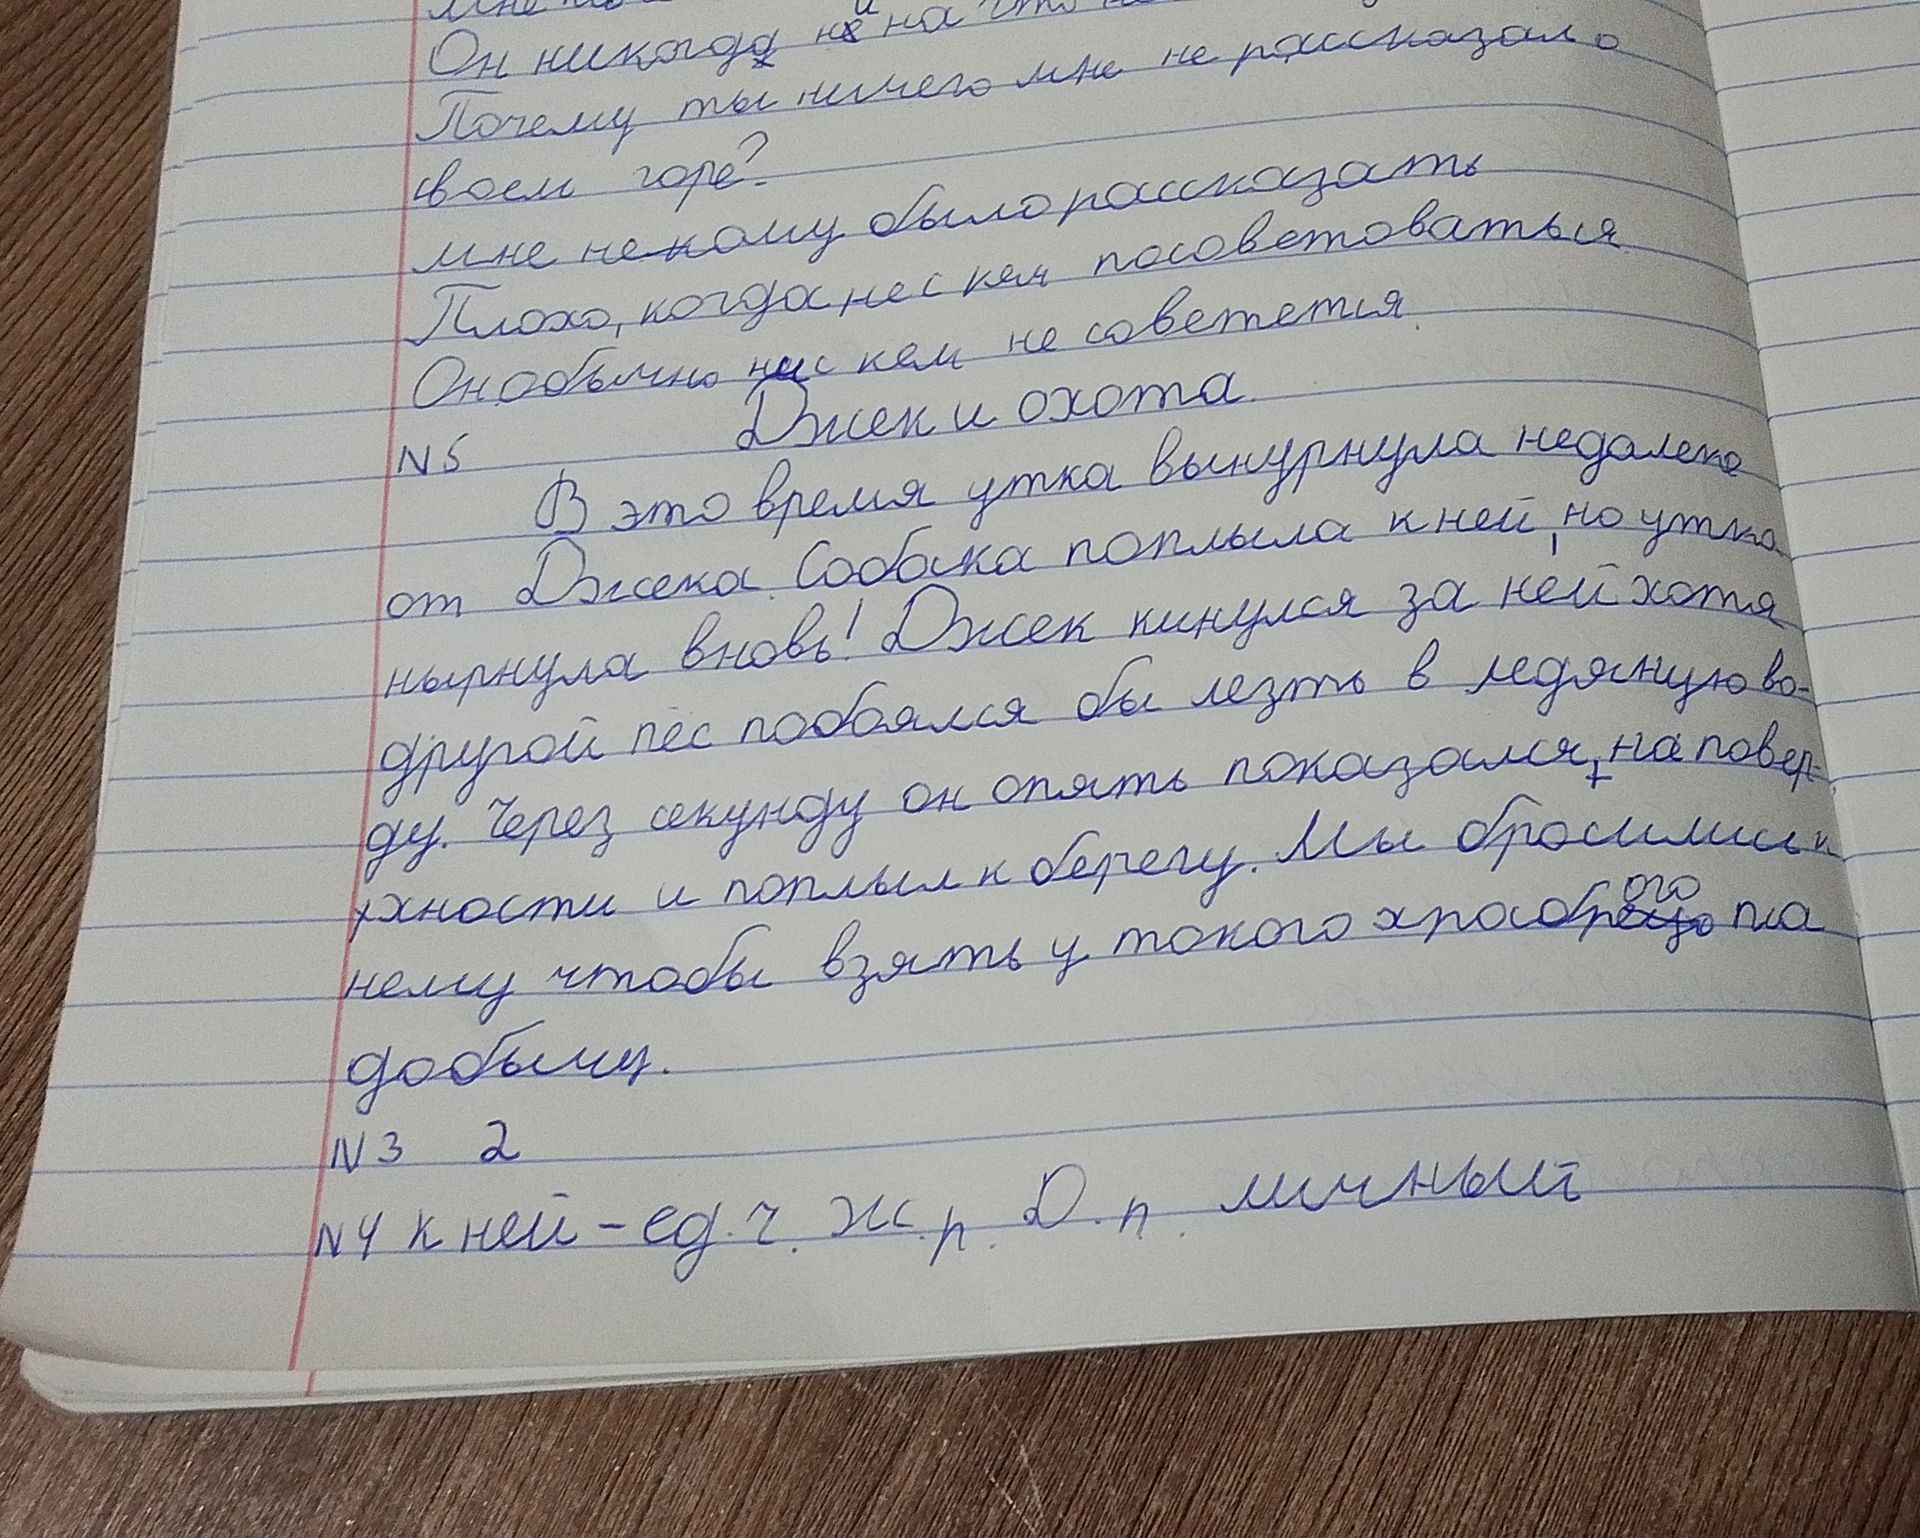 Мне
Он никогда ни на что не
Почему ты ничего мне не рассказал о
своем горе?
мне некому было рассказать
Плохо, когда не с кем посоветоваться
Он обычно ни с кем не советется.
N5 Джек и охота.
В это время утка вынурнула недалеко
от Джека. Собака поплыла к ней, но утка
нырнула вновь! Джек кинулся за ней хотя
другой пёс побоялся бы лезть в ледяную во-
ду. Через секунду он опять показался, на повер-
хности и поплыл к берегу. Мы бросились к
нему чтобы взять у такого храброго пса
добычу.
N3 2
N4 к ней - ед.ч. Ж.р. Д.п. личный